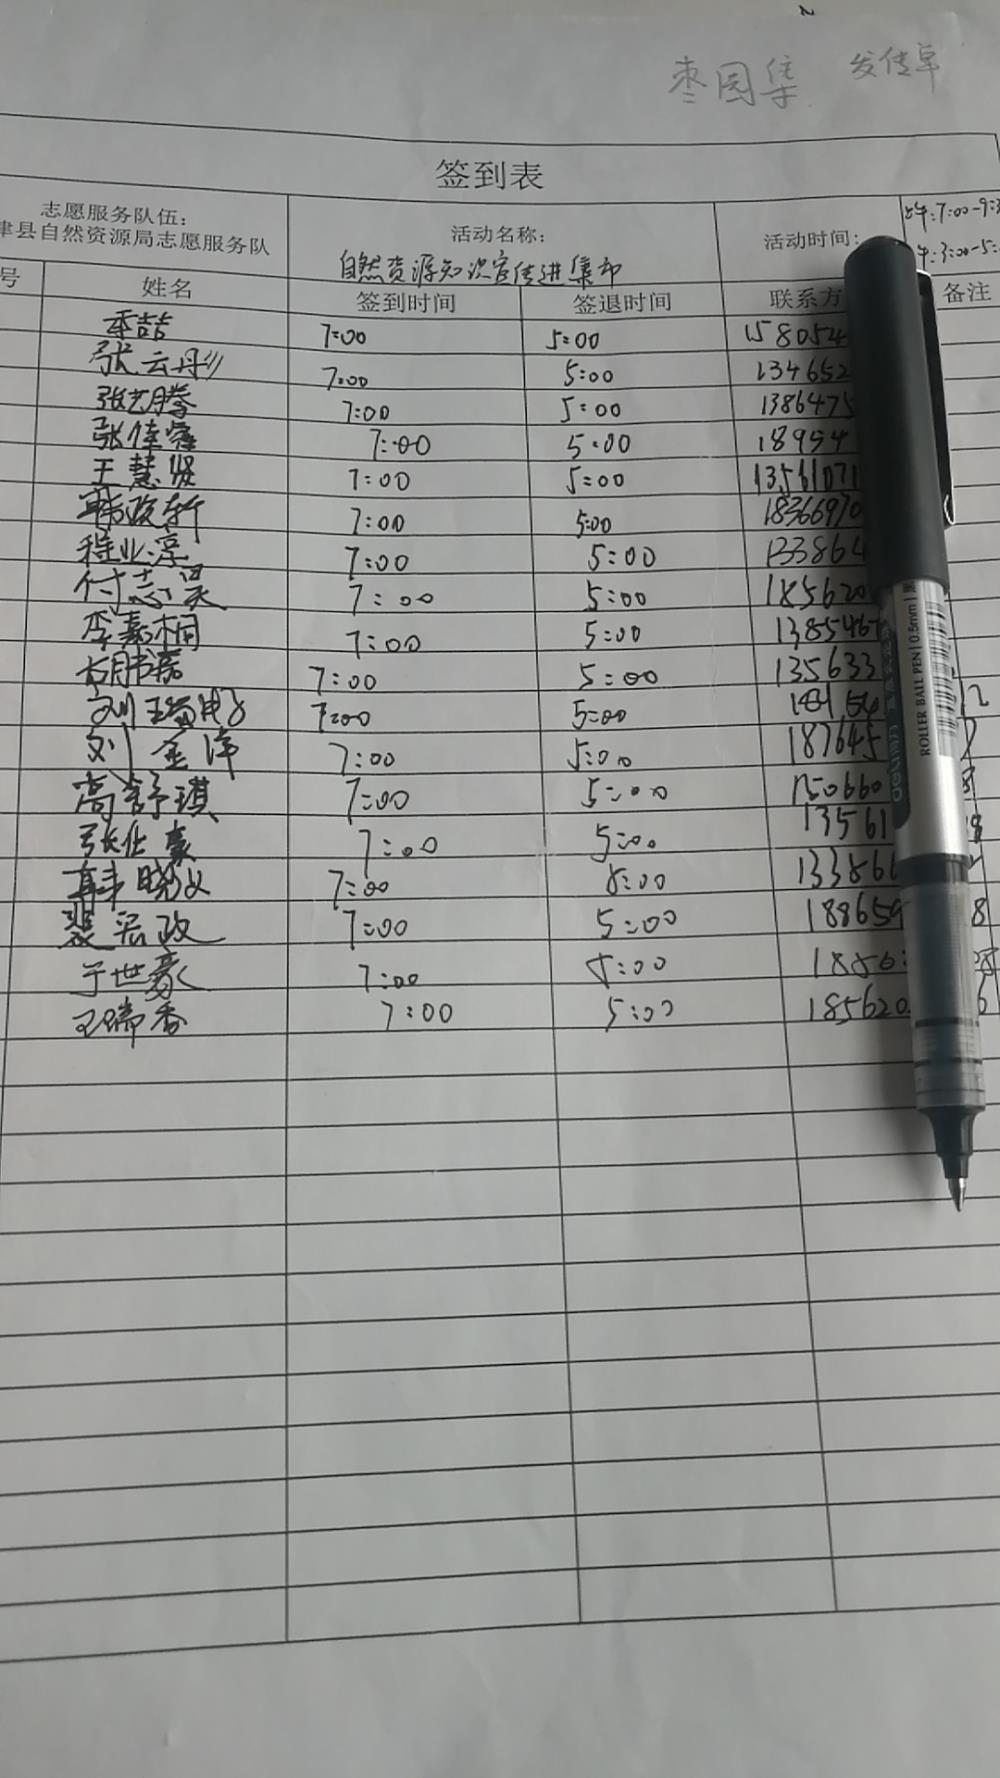 枣园集 发传单
签到表
志愿服务队伍:
津县自然资源局志愿服务队
活动名称:
自然资源知识宣传进集市
活动时间:
午:7:00-9:3
午:3:00-5:
号 姓名 签到时间 签退时间 联系方 备注
季喆 7:00 5:00 158054
张云丹 7:00 5:00 134652
张艺腾 7:00 5:00 1386475
张佳睿 7:00 5:00 18954
王慧贤 7:00 5:00 13561071
韩政轩 7:00 5:00 18366970
程业淳 7:00 5:00 133864
付志昊 7:00 5:00 185620
李嘉桐 7:00 5:00 1385467
胡书荣 7:00 5:00 135633
刘 7:00 5:00 12
刘金洋 7:00 5:00 187645 7
高舒琪 7:00 5:00 150660 8
张仕豪 7:00 5:00 13561 8
韩晓文 7:00 5:00 133866
裴宏政 7:00 5:00 188659 8
于世豪 7:00 5:00 1856
王瑞香 7:00 5:00 185620 6
ROLLER BALL PEN | 0.5mm